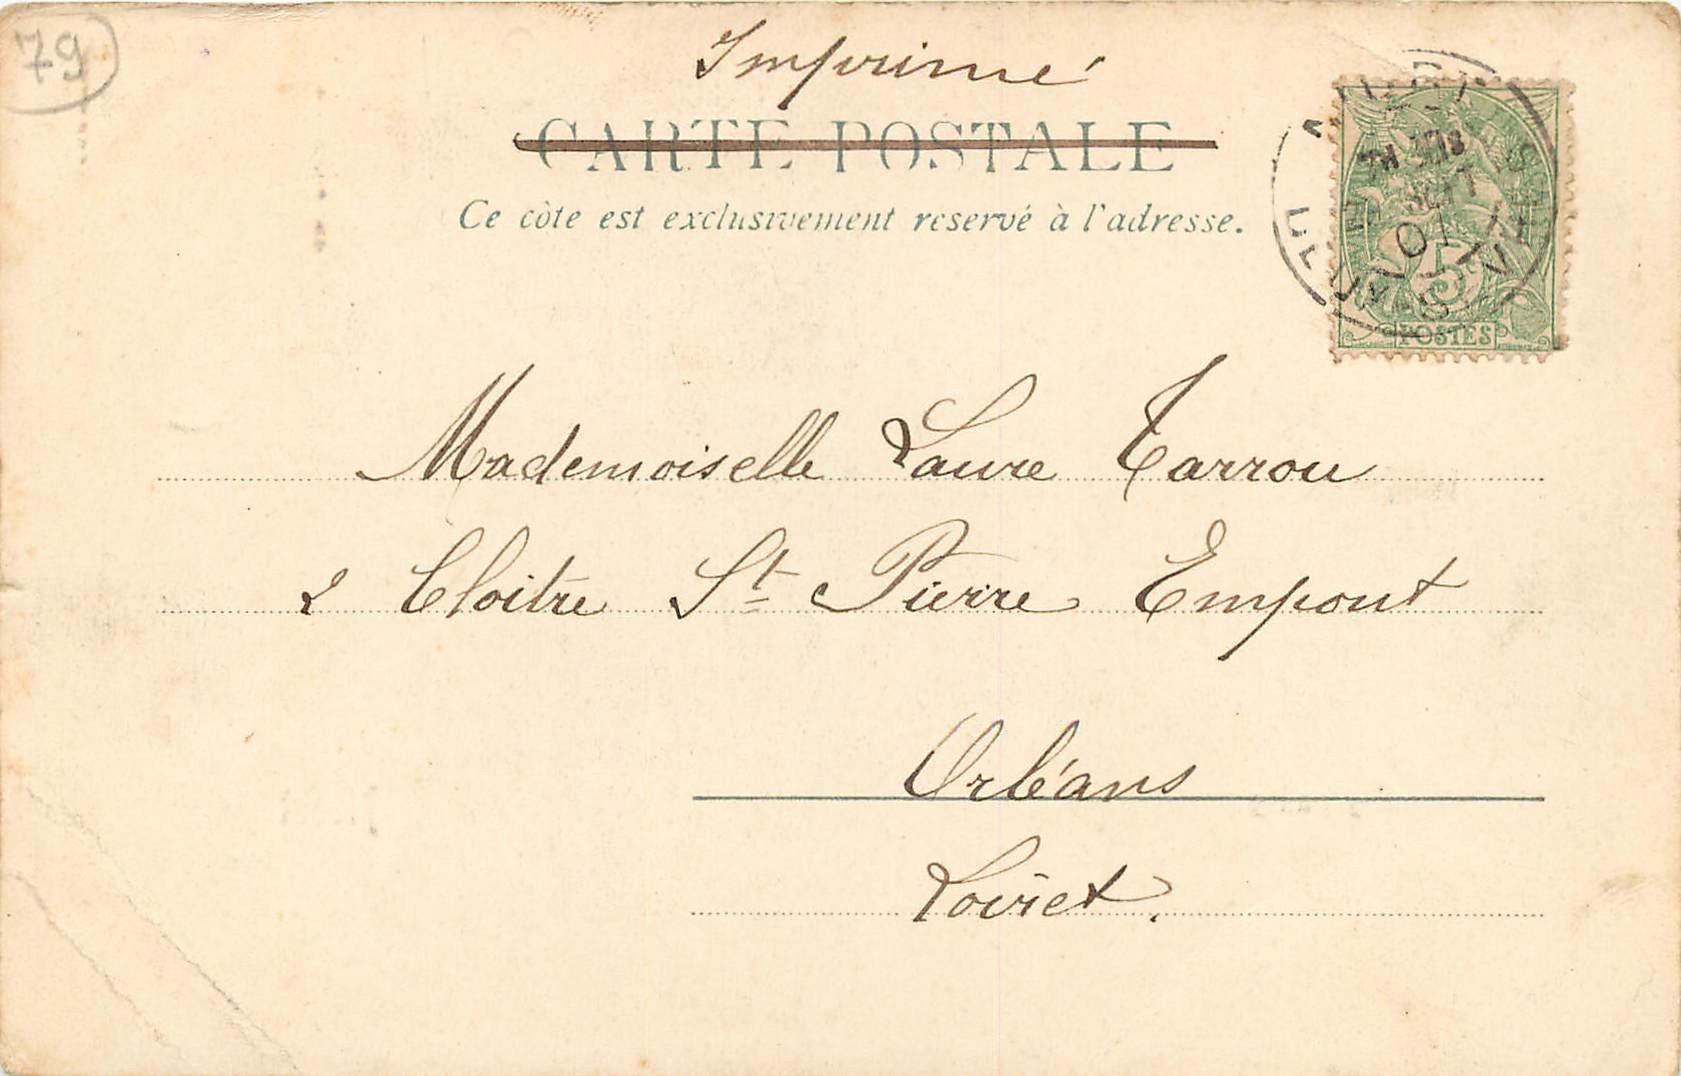 79
Imprimé
CARTE POSTALE
Ce côte est exclusivement reservé à l'adresse.
5
POSTES
Mademoiselle Laure Tarrou
2 Cloitre St Pierre Empont
Orléans
Loiret.